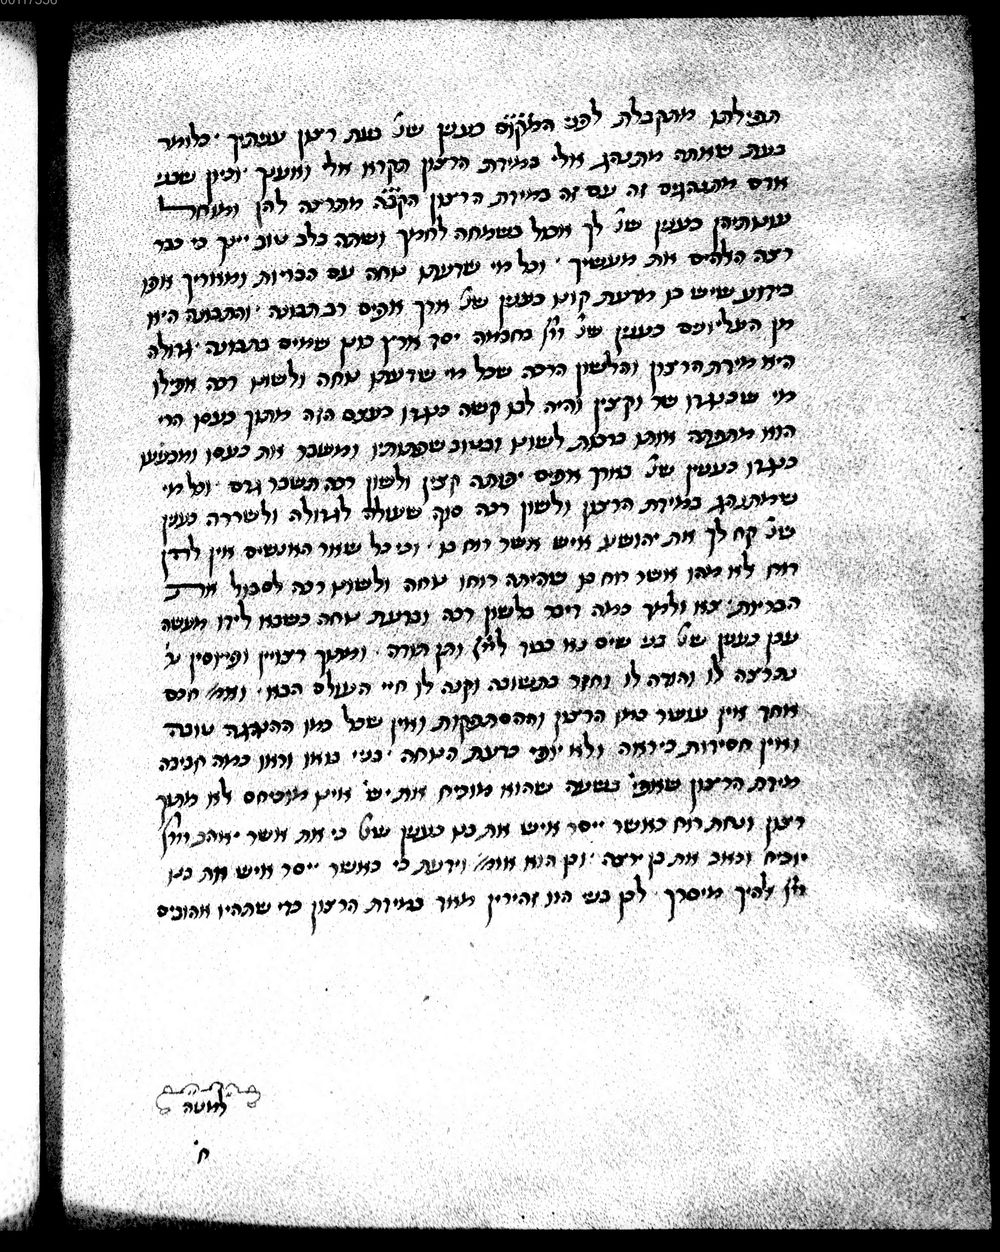 תפילתן מתקבלת לפני המקום כענין שנ' בעת רצון עניתיך ׳ כלומר
בעת שאתה מתנהג אלי במידת הרצון תקרא אלי ואענך ׳ וכיון שבני
אדם מתנהגים זה עם זה במידת הרצון הקבה מתרצה להן ומוחל
עונותיהן כענין שנ' לך אכול בשמחה לחמך ושתה בלב טוב יינך כי כבר
רצה האלהים את מעשיך ׳ וכל מי שדעתו נוחה עם הבריות ומאריך אפו
בידוע שיש בו מדעת קונו כענין שנ' ארך אפים רב תבונה ׳ והתבונה היא
מן העליונים כענין שנ' ייי בחכמה יסד ארץ כונן שמים בתבונה ׳ גדולה
היא מידת הרצון והלשון הרכה שכל מי שדעתו נוחה ולשונו רכה אפילו
מי שכנגדו שר וקצין והיה לבו קשה כנגדו כעצם הזה מתוך כעסו הרי
הוא מתפתה אותו ברכות לשונו ובטוב שפתותיו ומשבר את כעסו ומכניעו
כנגדו כענין שנ' באורך אפים יפותה קצין ולשון רכה תשבר גרם ׳ וכל מי
שמתנהג במידת הרצון ולשון רכה סופה שעולה לגדולה ולשררה כענין
שנ' קח לך את יהושע איש אשר רוח בו ׳ וכי כל שאר האנשים אין להן
רוח לא מהו אשר רוח בו שהיתה רוחו נוחה ולשונו רכה לסבול את
הבריות ׳ צא ולמד כמה דיבר בלשון רכה ובדעת נוחה כשבא לידו מעשה
עכן כענין שנ' בני שים נא כבוד לייי ותן תודה ׳ ומתוך רצויין ופיוסין
נתרצה לו והודה לו וחזר בתשובה וקנה לו חיי העולם הבא ׳ ואמ' חכם
אחד אין עושר כמו הרצון וההסתפקות ואין שכל כמו ההנהגה טובה
ואין חסידות כיראה ולא יופי כדעת הנוחה ׳ בניי בואו וראו כמה חביבה
מידת הרצון שאפי' בשעה שהוא מוכיח את יש' אינו מוכיחם לא מתוך
רצון ונחת רוח כאשר ייסר איש את בנו כענין שנ' כי את אשר יאהב ייי
יוכיח וכאב את בן ירצה ׳ וכן הוא אומ' וידעת כי כאשר ייסר איש את בנו
ייי אלהיך מיסרך ׳ לכן בני היו זהירין מאד במידת הרצון כדי שתהיו אהובים
למטה
ח'